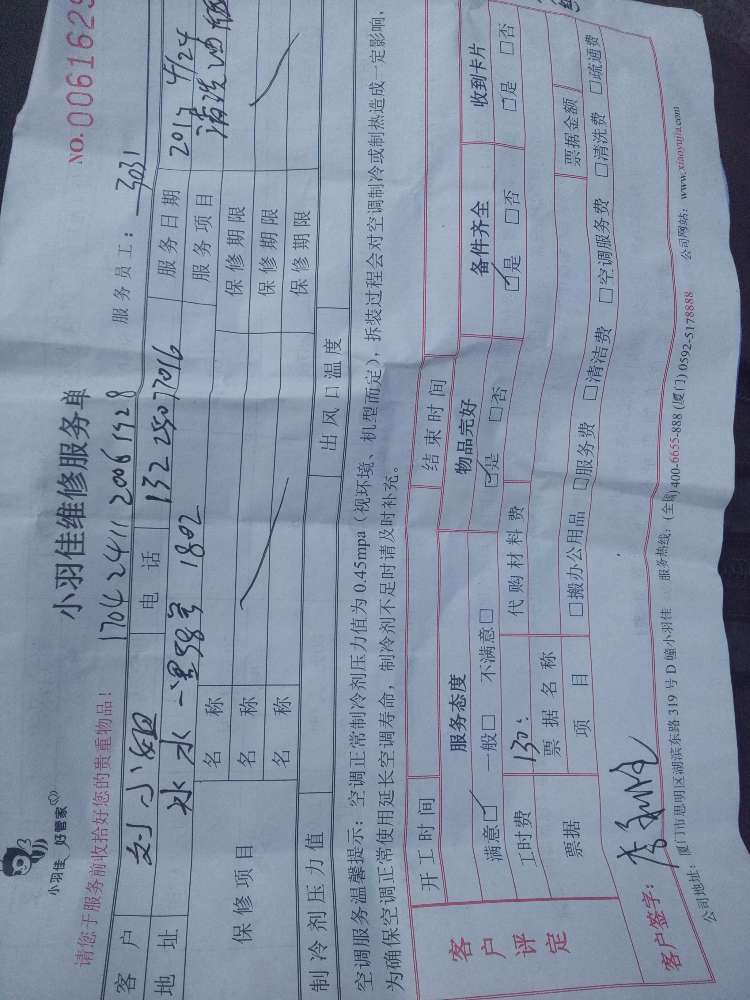 小羽佳 好管家
小羽佳维修服务单
NO.0061629
请您于服务前收拾好您的贵重物品!
17042411 20061928
服务员工: 3031
客户 刘小姐 电话 13225077016 服务日期 2017 4/24
地址 水一里58号 1802 服务项目 清洗
保修项目 名称 保修期限
名称 保修期限
名称 保修期限
制冷剂压力值 出风口温度
空调服务温馨提示:空调正常制冷剂压力值为0.45mpa(视环境、机型而定),拆装过程会对空调制冷或制热造成一定影响,
为确保空调正常使用延长空调寿命,制冷剂不足时请及时补充。
客户评定 开工时间 结束时间
服务态度 物品完好 备件齐全 收到卡片
满意☑ 一般□ 不满意□ ☑是 □否 ☑是 □否 □是 □否
工时费 130. 代购材料费
票据 票据名称 票据金额
项目 □搬办公用品 □服务费 □清洁费 □空调服务费 □清洗费 □疏通费
客户签字:
公司地址:厦门市思明区湖滨东路319号D幢小羽佳 服务热线:(全国)400-6655-888 (厦门) 0592-5178888 公司网站:www.xiaoyujia.com